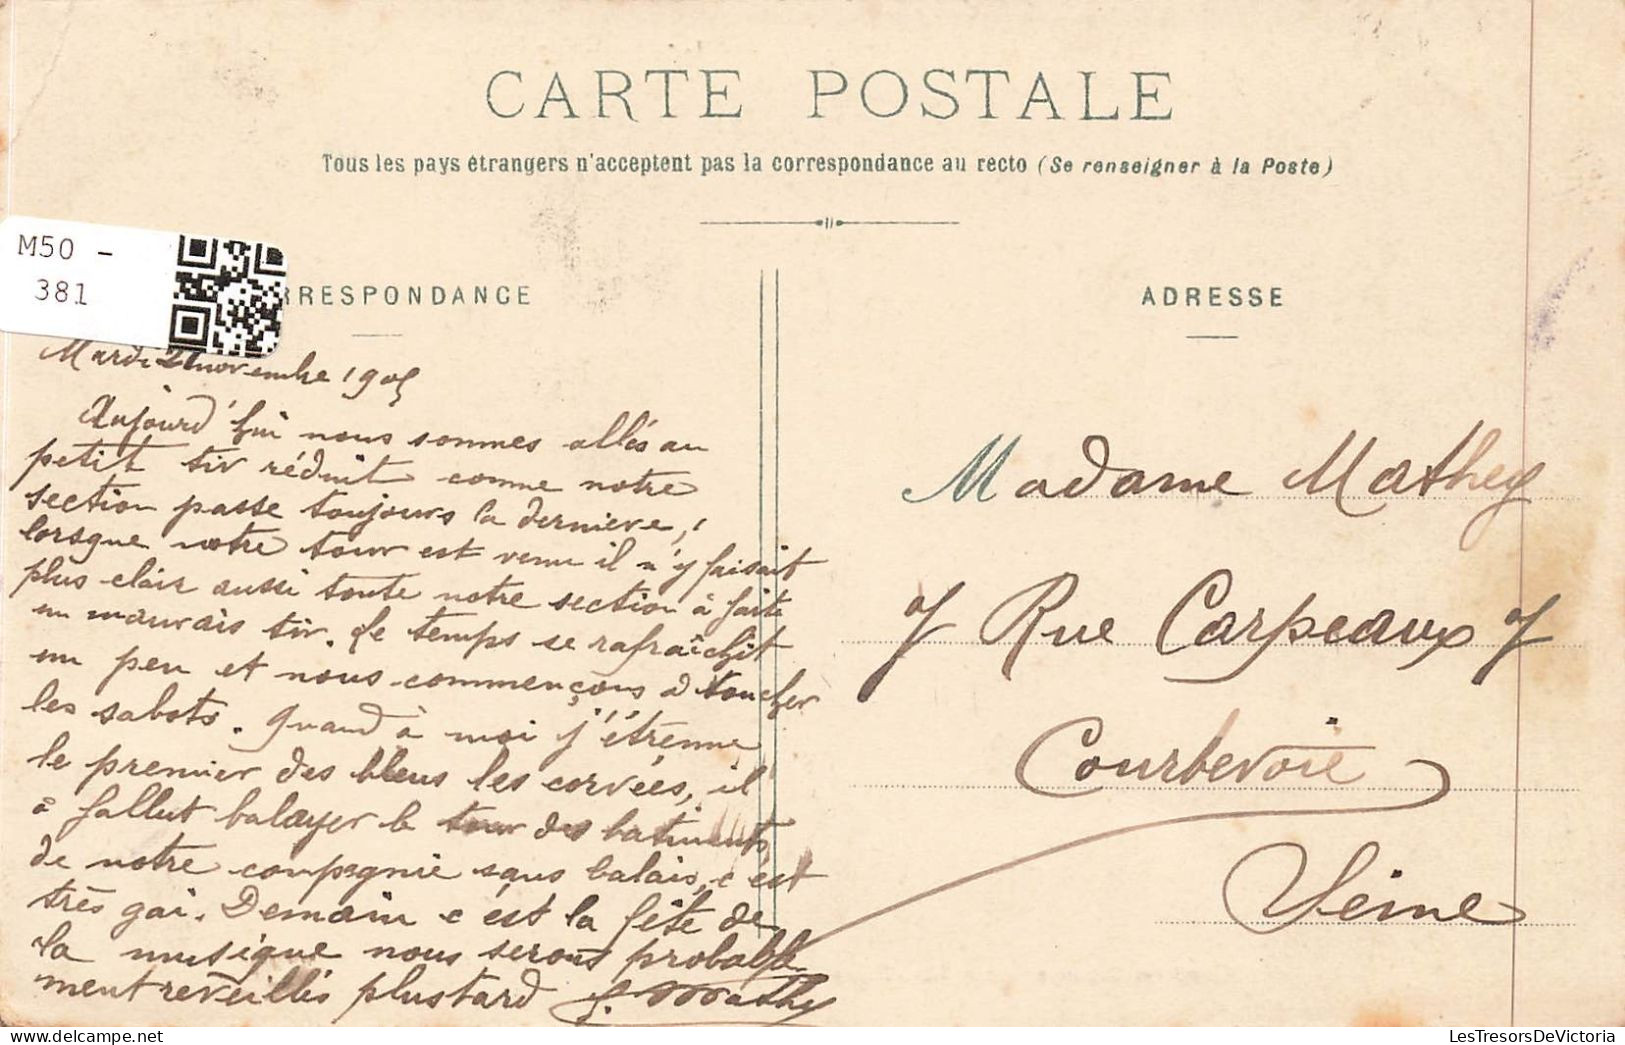 CARTE POSTALE
Tous les pays étrangers n'acceptent pas la correspondance au recto (Se renseigner à la Poste)
M50 -
381
RRESPONDANCE
Mardi 21 novembre 1905
Aujourd'hui nous sommes allés au
petit tir réduit comme notre
section passe toujours la dernière,
lorsque notre tour est venu il n'y faisait
plus clair aussi toute notre section à faite
un mauvais tir. Le temps se rafraîchit
un peu et nous commençons à toucher
les sabots. Quand à moi j'étrenne
le premier des bleus les corvées, il
à fallut balayer le tour des batiments
de notre compagnie sans balais, c'est
très gai. Demain c'est la fête de
la musique nous serons probable
ment reveillés plustard J. Mathey
ADRESSE
Madame Mathey
7 Rue Carpeaux 7
Courbevoie
Seine
LesTresorsDeVictoria.com